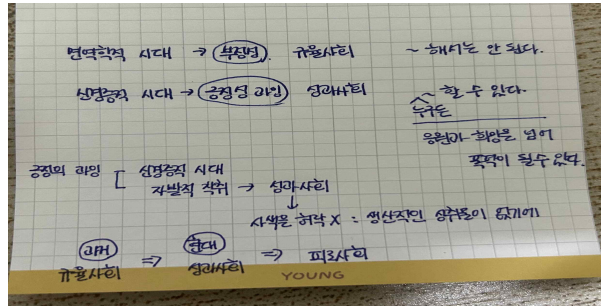 면역학적 시대 → 부정성. 규율사회 ~ 해서는 안 된다.
신경증적 시대 → 긍정성 과잉 성과사회 ~ 할 수 있다.
누구든
응원과 희망을 넘어
폭력이 될 수 있다.
긍정의 과잉 [ 신경증적 시대
자발적 착취 → 성과사회
↓
사색을 허락 X : 생산적인 성취물이 없기에
과거 현대
규율사회 ⇒ 성과사회 ⇒ 피로사회
YOUNG